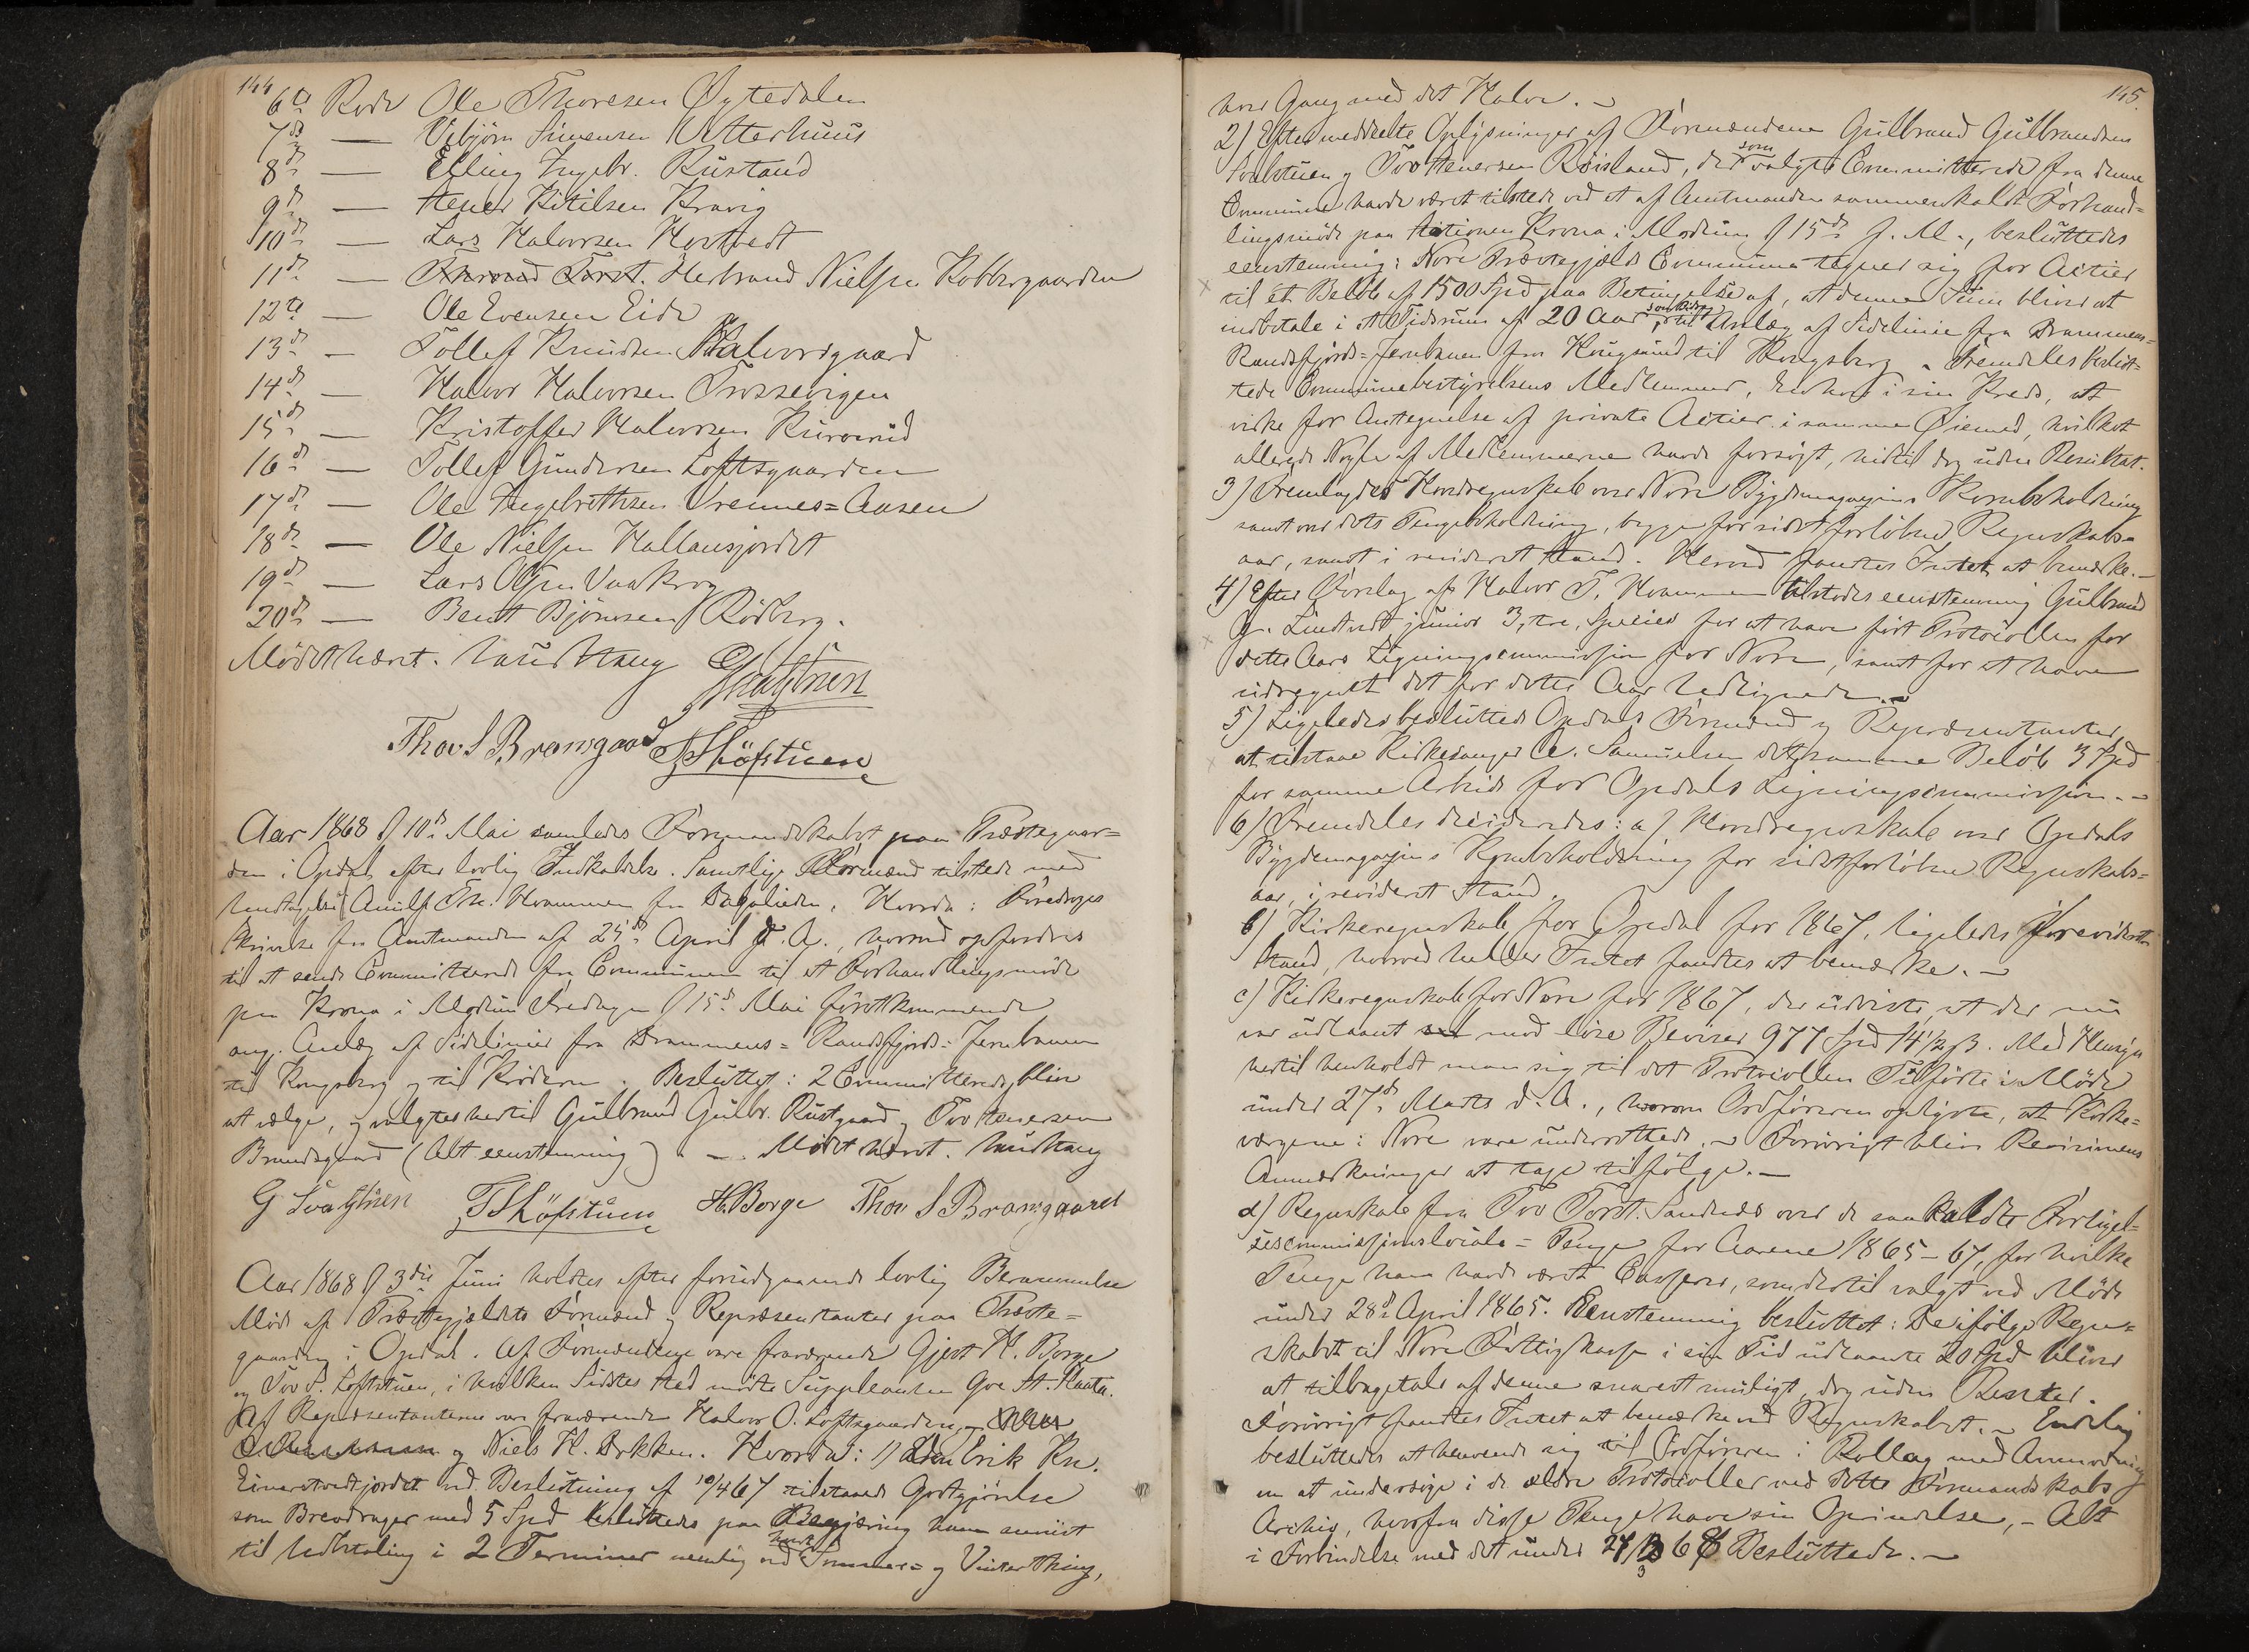 144
6te Rode Ole Thoresen Øytedalen
7de — Vebjörn Simensen Vetterhuus
8de — Elling Ingebr. Rustand
9de — Stener Ketilsen Kravig
10de — Lars Halvorsen Hovtvedt
11de — Thorand Torst. Herbrand Nielsen Kobbergaarden
12te — Ole Evensen Eide
13de — Tollef Knudsen Halvorsgaard
14de — Halvor Halvorsen Trossevigen
15de — Kristoffer Halvorsen Ruverud
16de — Tollef Gundersen Loftsgaarden
17de — Ole Engebrethsen Vrennes-Aasen
18de — Ole Nielsen Hallansjordet
19de — Lars Olsen Vaakrog
20de — Bent Björnsen Rödberg.
Mödet hævet.
Thov S Bramsgaard T Sköfstuen
Aar 1868 d 10de Mai samledes Formandskabet paa Præstegaar-
den i Opdal, efter lovlig Indkaldelse. Samtlige Formænd tilstede med
Undtagelse af Th. Hvammen fra Dagalien. Hvorda: Foredroges
Skrivelse fra Amtmanden af 25de April d. A., hvorved opfordres
til at sende Committerede fra Communen til et Forhandlingsmöde
paa Krona i Modum Fredagen d 15de Mai förstkommende
ang. Anlæg af Sidelinier fra Drammens-Randsfjords-Jernbanen
til Kongsberg og til Kröderen. Besluttet: 2 Committerede bliver
at vælge, og valgtes hertil Gulbrand Gulbr. Rustgaard og Tov Stenersen
Brundsgaard (Alt eenstemmig). — Mödet hævet.
G Svastuen T Sköfstuen H. Borge Thov S Bramsgaard
Aar 1868 d 3die Juni holdtes efter forudgaaende lovlig Berammelse
Möde af Præstegjældets Formænd og Repræsentanter paa Præste-
gaarden i Opdal. Af Formændene vare fraværende Gjert H. Borge
og Tov S. Loftstuen, i hvilken Sidstes Sted mödte Suppleanten Gve St. Raata.
Af Repræsentanterne var fraværende Halvor O. Loftsgaarden,
og Niels H. Dokken. Hvorda: 1) Den Erik Kn.
Einarstvedtjordet ved Beslutning af 10/4 67 tilstaaede Godtgjörelse
som Brevdrager med 5 Spd besluttedes paa Begjæring ham anviist
til Udbetaling i 2 Terminer nemlig ved hvert Sommer- og Vinterthing,
145.
hver Gang med det Halve. —
2) Efter meddeelte Oplysninger af Formændene Gulbrand Gulbrandsen
Svastuen og Tov Stenersen Röisland, der som valgte Committerede fra denne
Commune havde været tilstede ved et af Amtmanden sammenkaldt Forhand-
lingsmöde paa Stationen Krona i Modum d 15de f. M., besluttedes
eenstemmig: Nore Præstegjælds Commune tegner sig for Actier
til ét Belöb af 1500 Spd paa Betingelse af, at denne Sum bliver at
indbetale i et Tidsrum af 20 Aar, som Bidrag til Anlæg af Sidelinie fra Drammens-
Randsfjords-Jernbanen fra Hougsund til Kongsberg. Fremdeles beslut-
tede Communebestyrelsens Medlemmer, Enhver i sin Kreds, at
virke for Antegnelse af private Actier i samme Øiemed, hvilket
allerede Nogle af Medlemmerne havde forsögt, hidtil dog uden Resultat.
3) Fremlagdes Hovedregnskab over Nore Bygdemagazins Kornbeholdning
samt over dets Pengebeholdning, begge for sidst forlöbne Regnskabs-
aar, samt i revideret Stand. Herved fandtes Intet at bemærke. —
4) Efter Forslag af Halvor T. Hvammen tilstodes eenstemmig Gulbrand
G. Lindtvedt junior 3, tre, Species for at have fört Protocollen for
dette Aars Ligningscommission for Nore, samt for at have
udregnet det for dette Aar Udlignede. —
5) Ligeledes besluttede Opdals Formænd og Repræsentanter,
at tilstaae Kirkesanger A. Samuelsen det samme Belöb 3 Spd
for samme Arbeide for Opdals Ligningscommission. —
6) Fremdeles decideredes: a) Hovedregnskab over Opdals
Bygdemagazins Kornbeholdning for sidstforlöbne Regnskabs-
aar, i revideret Stand.
b) Kirkeregnskab for Opdal for 1867, ligeledes i revideret
Stand, hvorved heller Intet fandtes at bemærke. —
c) Kirkeregnskab for Nore for 1867, der udviste, at der nu
var udlaant mod löse Beviser 977 Spd 14 1/2 ß. Med Hensyn
hertil henholdt man sig til det Protocollen Tilförte i Möde
under 27de Marts d. A., hvorom Ordföreren oplyste, at Kirke-
værgerne i Nore vare underrettede. — Forövrigt bliver Revisionens
Anmærkninger at tage tilfölge. —
d) Regnskab fra Tov Torst. Sandnæs over de saakaldte Forligel-
sescommissionslocale-Penge for Aarene 1865-67, for hvilke
Penge han havde været Casserer, som dertil valgt ved Möde
under 28de April 1865. Eenstemmig besluttet: De ifölge Regn-
skabet til Nore Fattigkasse i sin Tid udlaante 20 Spd bliver
at tilbagebetale af denne snarest muligt, dog uden Renter.
Forövrigt fandtes Intet at bemærke ved Regnskabet. — Endelig
besluttedes at henvende sig til Ordföreren i Rollag med Anmodning
om at undersöge i de ældre Protocoller ved dette Formandskabs
Archiv, hvorfra disse Penge have sin Oprindelse, — Alt
i Forbindelse med det under 27/3 68 Besluttede. —